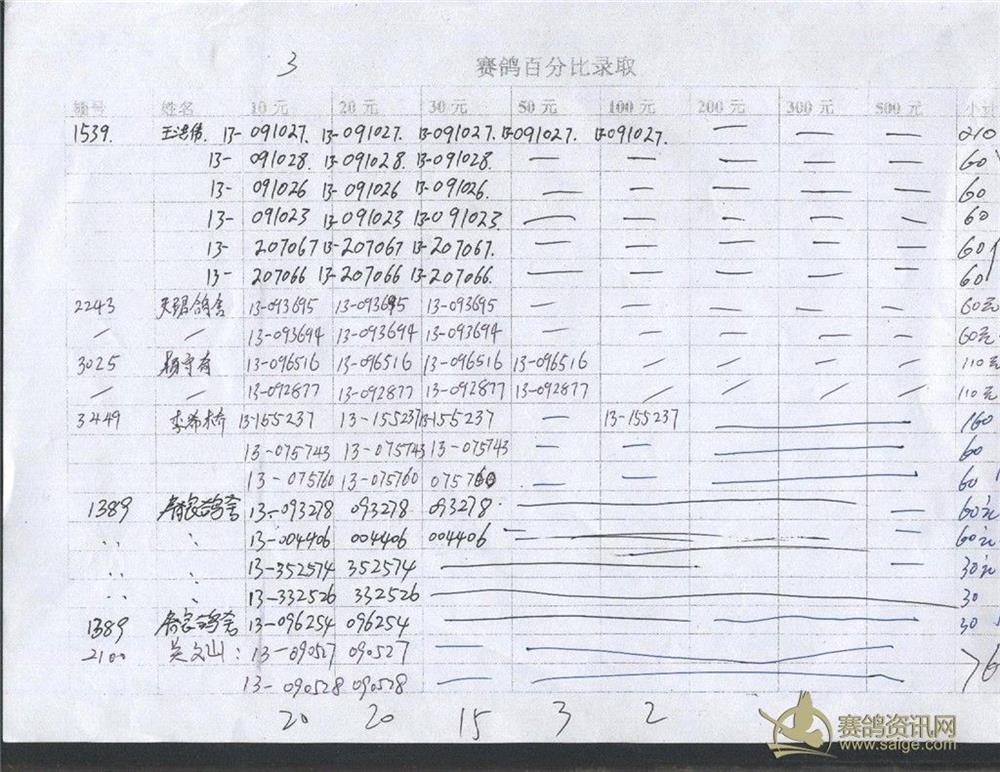 3 赛鸽百分比录取
编号 姓名 10元 20元 30元 50元 100元 200元 300元 500元 小计
1539. 13-091027. 13-091027. 13-091027. 13-091027. 13-091027. — — — 210
13-091028. 13-091028. 13-091028. — — — — — 60
13-091026 13-091026 13-091026. — — — — — 60
13-091023 13-091023 13-091023. — — — — — 60
13-207067 13-207067 13-207067. — — — — — 60
13-207066 13-207066 13-207066. — — — — — 60
2243 13-093695 13-093695 13-093695 — — — — — 60元
/ / 13-093694 13-093694 13-093694 — — — — — 60元
3025 13-096516 13-096516 13-096516 13-096516 / / / / 110元
/ / 13-092877 13-092877 13-092877 13-092877 / / / / 110元
3449 李希桥 13-155237 13-155237 13-155237 — 13-155237 — 160
13-075743 13-075743 13-075743 — — — 60
13-075760 13-075760 075760 — — — 60
1389 13-093278 093278 093278. — — 60元
13-004406 004406 004406 — 60元
13-352574 352574 — — 30元
13-332526 332526 — 30
1389 13-096254 096254 — — 30
2100 吴文山: 13-090527 090527 — —
13-090528 090528 — —
20 20 15 3 2
赛鸽资讯网
www.saige.com